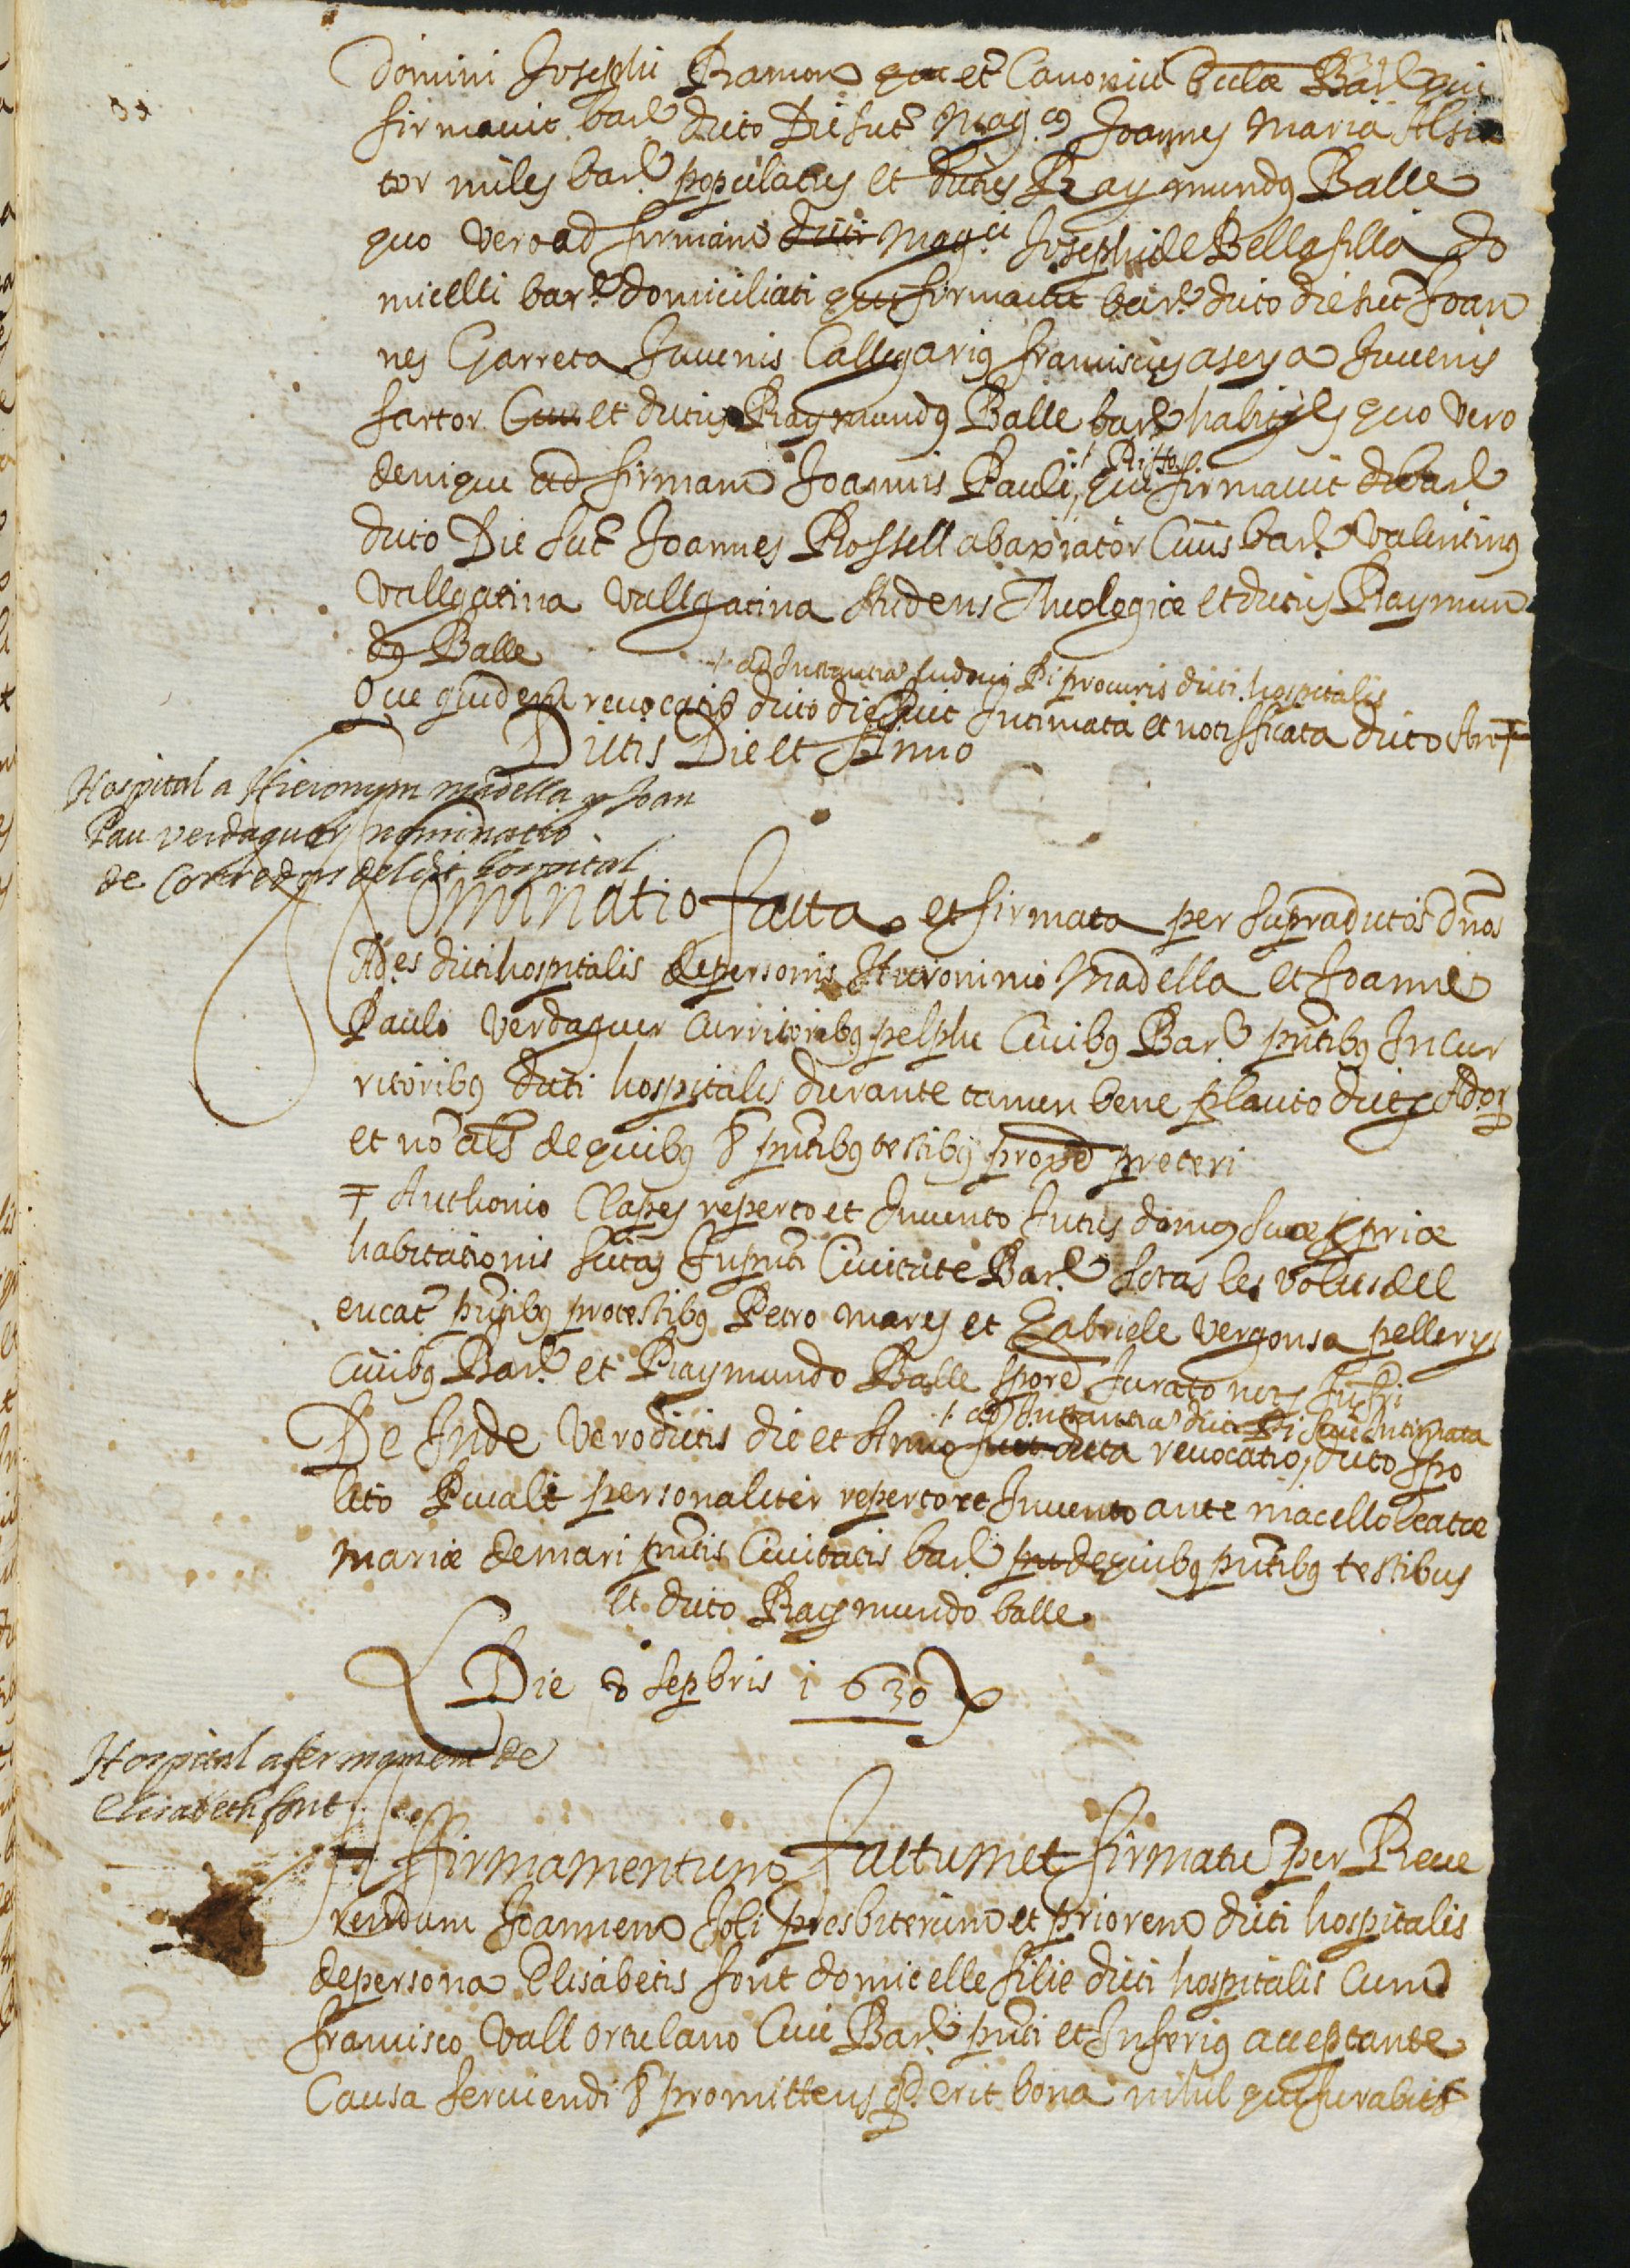 domini Josephi Ramon et Canonici Eccle Bar qui
firmavit bar dicto Die sut Magcs Joannes Maria Alsia
tor miles bar populatus et dictus Raymundus Balle
quo vero ad firmam dicti Magci Josephi de Bellafilla do
micelli bar domiciliati qui firmavit bar dicto die sut Joan
nes Garreta Juvenis Calligarius franciscus aseya Juvenis
sartor Civis et dictus Raymundus Balle bar habit quo vero
denique ad firmam Joannis Pauli, Ritto qui firmavit bar
dicto Die sut Joannes Rossell abaxiator Civis bar Valentinus
Vallgatina Vallgatina studens Theologice et dictus Raymun
dus Balle
ad Instantia Ludovici Pi procuris dicti hospitalis
Que quidem revocatio dicto die fuit Intimata et notifficata dicto An
Dictis Die et Anno
Hospital a Hieronym madella y Joan
Pau verdaguer nominatio
de Corredors del dit hospital
Nominatio facta et firmata per supradictos dnos
Ades dicti hospitalis de personis Hieronimo Madella et Joanne
Paulo Verdaguer Curritoribus Civibus Bar pntibus In Cur
ritoribus dicti hospitalis durante tamen bene placito dictor Ador
et no als de quibus & pntibus testibus proxe preteri
Anthonio Clapes reperto et Invento Intus domus sue pprie
habitationis sitas In pnti Civitate Bar sotas les voltes del
encat pntibus pro testibus Petro mares et Gabriele Vergonsa pellerys
Civibus Bar et Raymundo Balle spore Jurato
ad Instantia dicti Pi fuit Intimata
De Inde Vero dictis die et Anno fuit dicta revocatio, dicto Ipo
lito Pivalt personaliter reperto et Invento ante macello beatce
Marie de mari pntis Civitatis bar de quibus pntibus testibus
et dicto Raymundo balle
Die 8 sepbris 1630
Hospital afermament de
Elisabeth font
Affirmamentum factum et firmatu per Reve
rendum Joannem Joli presbiterum et priorem dicti hospitalis
de persona Elisabetis font domicelle filie dicti hospitalis Cum
francisco Vall ortulano Cive Bar pnti et Inferius acceptante
Causa serviendi & promittens qd erit bona nihil qui furabit